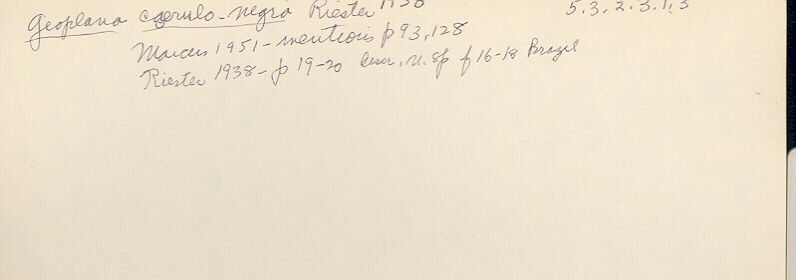 Geoplana caerulo-negra Riester 1938 5.3.2.3.1.3
Marcus 1951 - mentions p 93, 128
Riester 1938 - p 19-20 n. sp f 16-18 Brazil